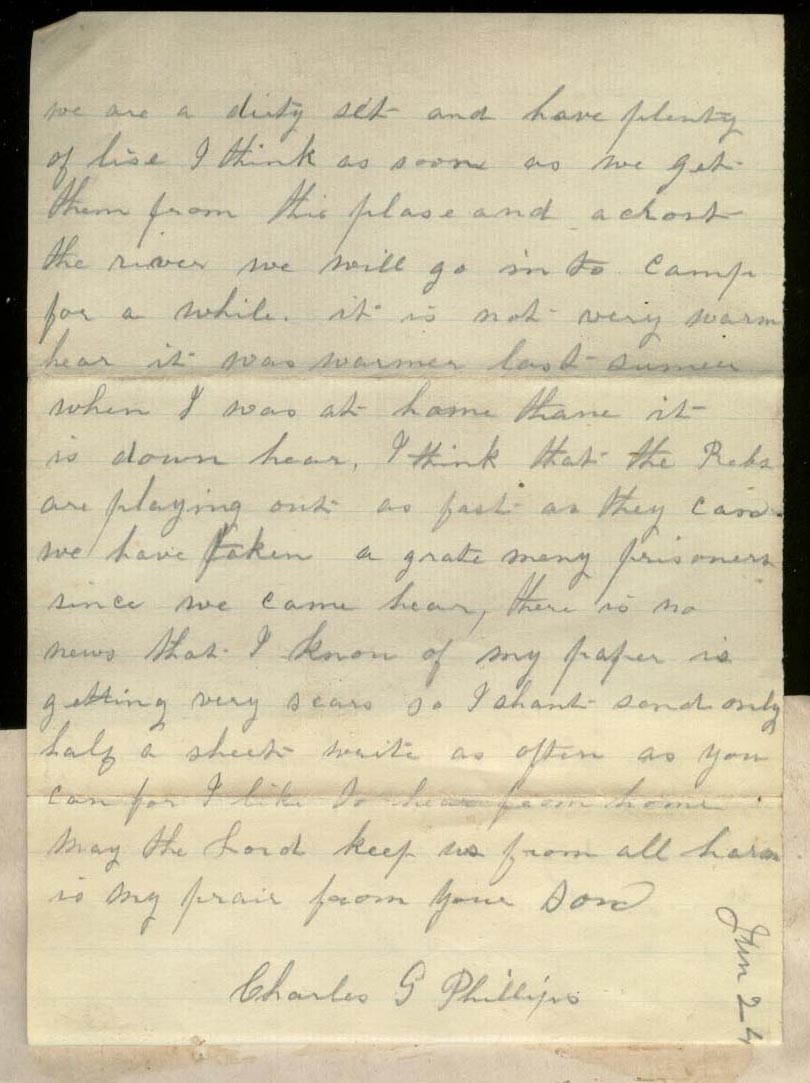 we are a dirty set and have plenty
of lise I think as soon as we get
them from this plase and acrost
the river we will go in to camp
for a while. it is not very warm
hear it was warmer last sumer
when I was at home thane it
is down hear, I think that the Rebs
are playing out as fast as they can.
we have taken a grate meny prisoners
since we came hear, there is no
news that I know of my paper is
getting very scars so I shant send only
half a sheet write as often as you
can for I like to hear from home
may the Lord keep us from all harm
is my prair from your son
Charles G Phillips
Jun 24